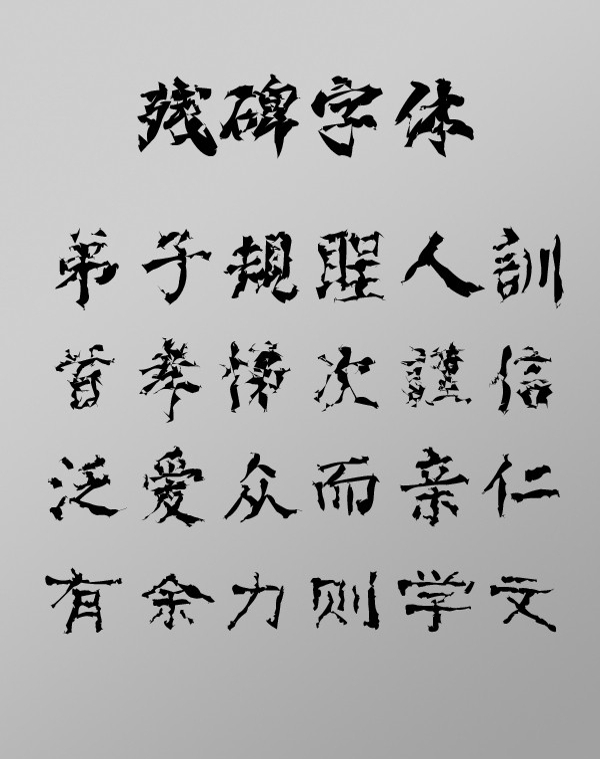 残碑字体
弟子規聖人訓
首孝悌次謹信
泛愛众而亲仁
有余力则学文